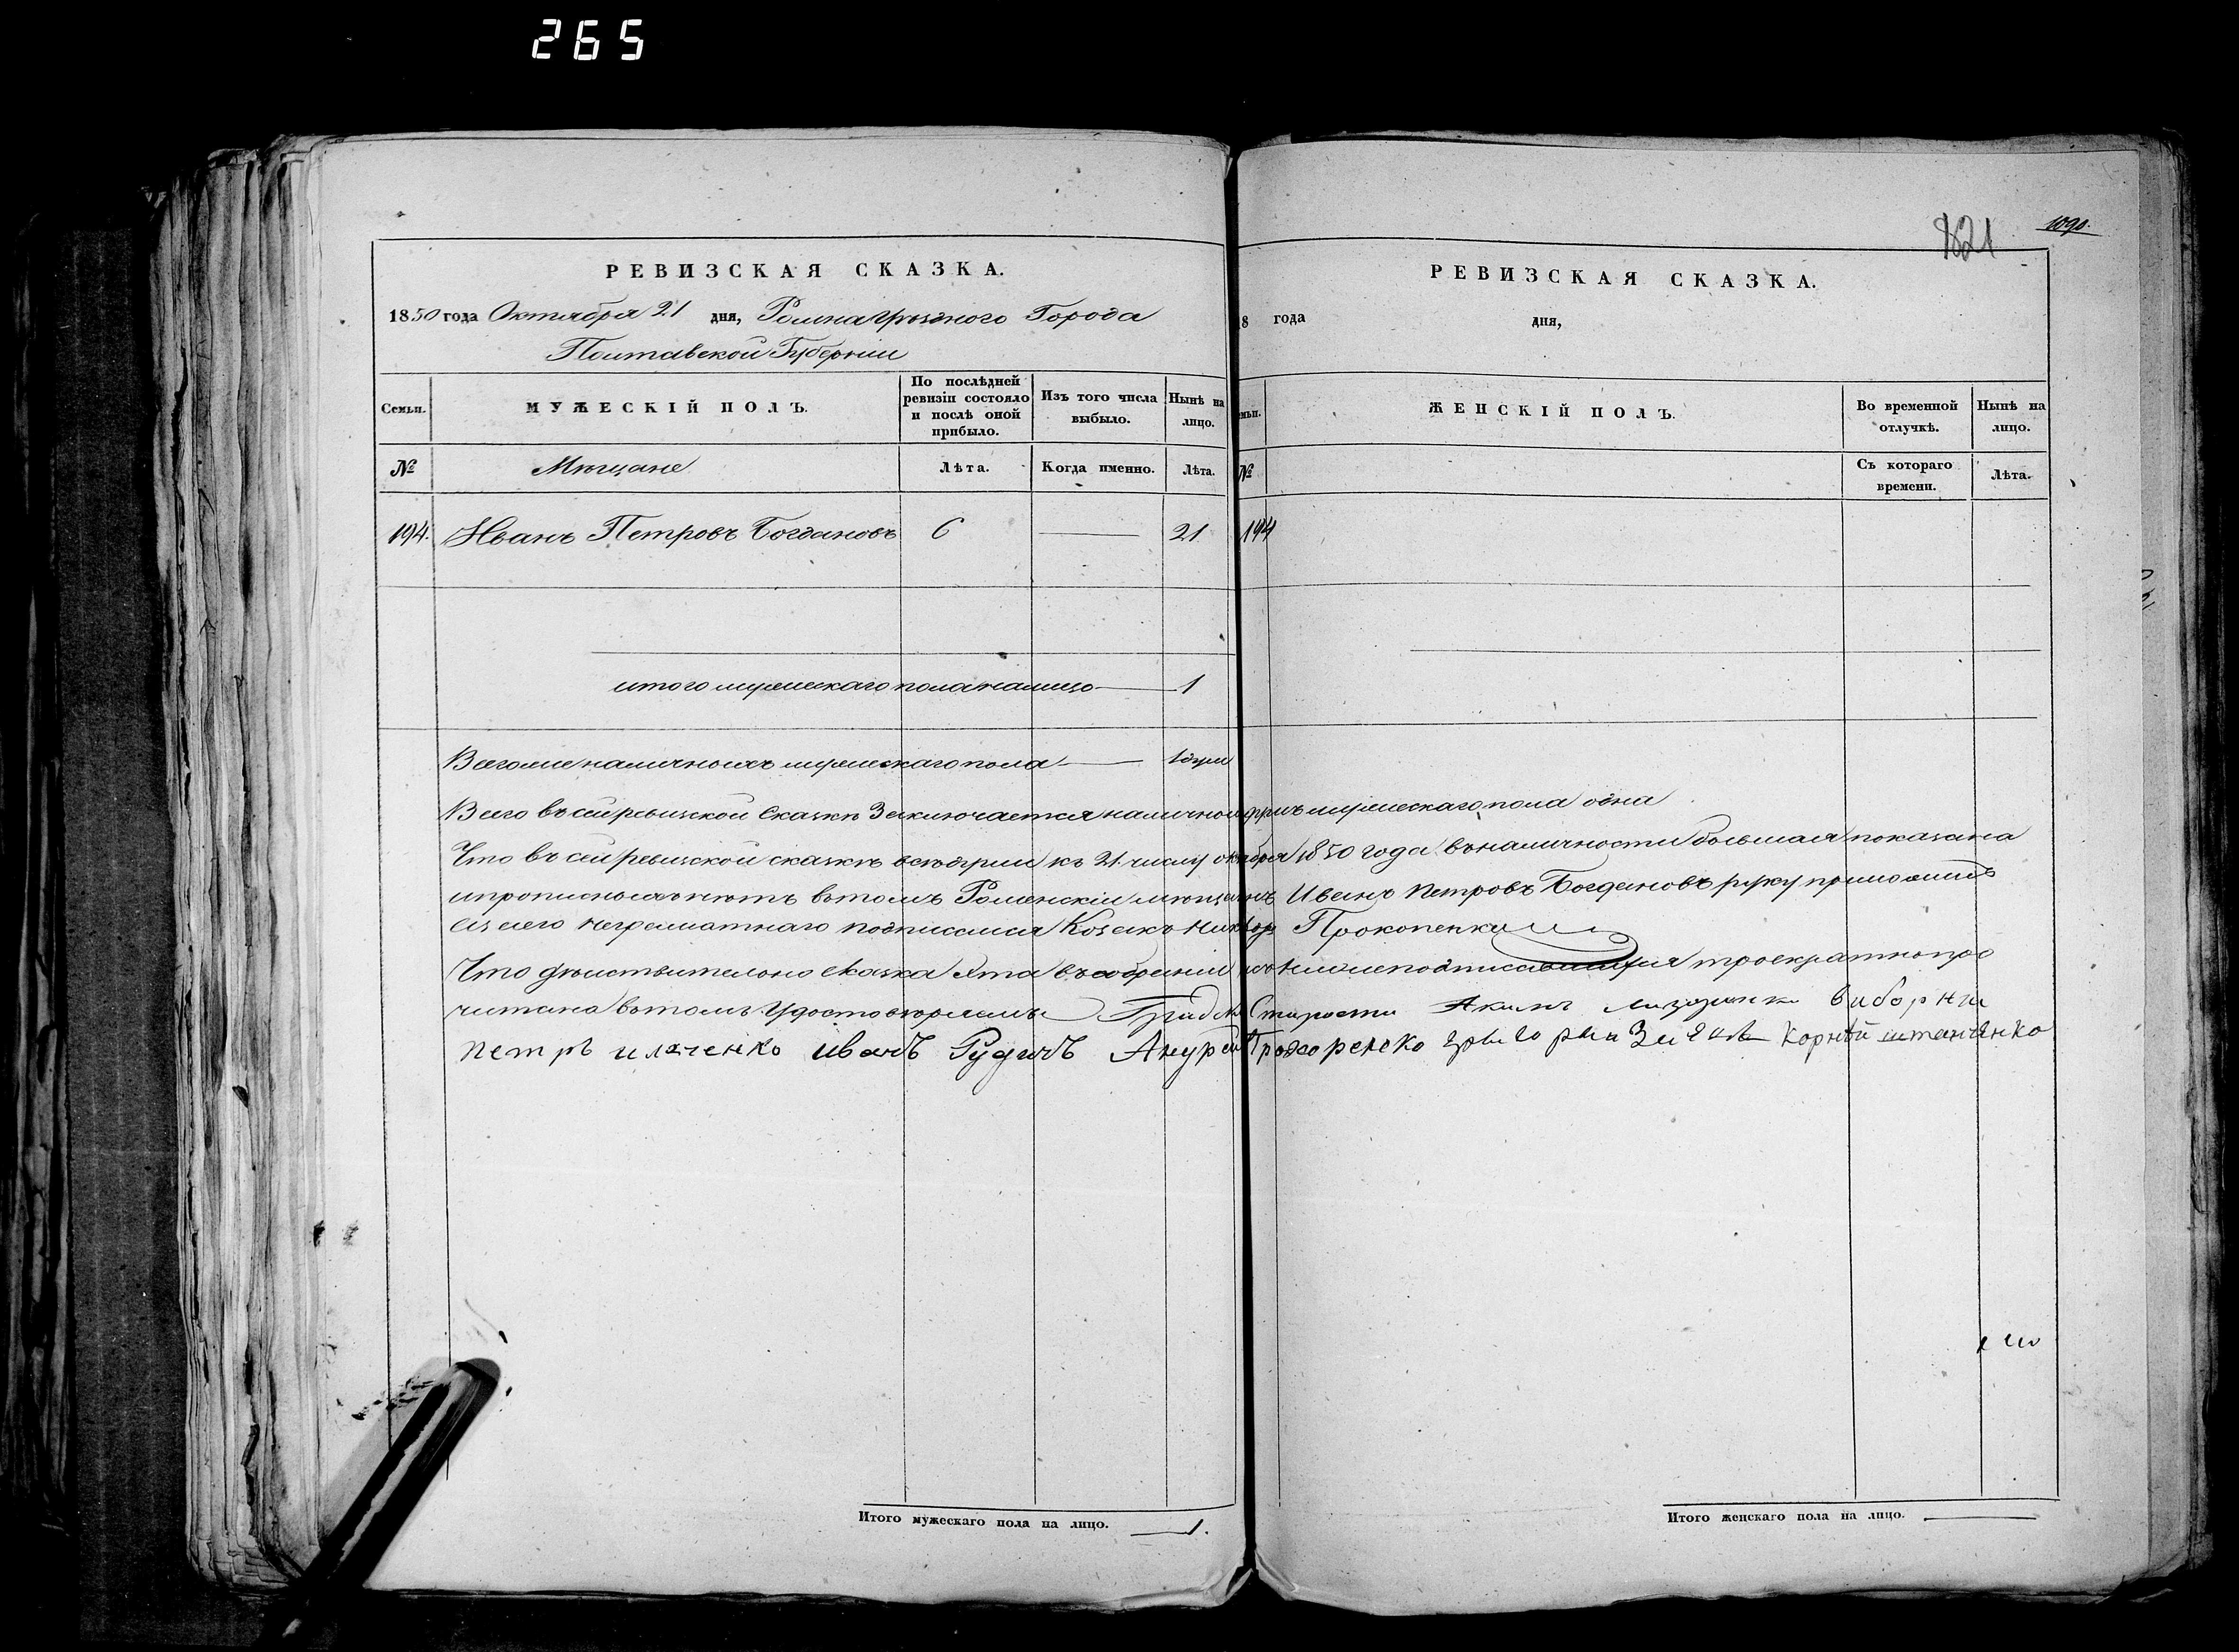 265
821
1090.
РЕВИЗСКАЯ СКАЗКА.
1850 года Октября 21 дня, Ромна Уѣзднаго Города
Полтавской Губерніи
Семьи.
МУЖЕСКІЙ ПОЛЪ.
По послѣдней ревизіи состояло и послѣ оной прибыло.
Изъ того числа выбыло.
Нынѣ на лицо.
№
Мѣщане
Лѣта.
Когда именно.
Лѣта.
194. Иванъ Петровъ Богдановъ 6 — 21
итого мужескаго пола налицо — 1
Всего же наличныхъ мужескаго пола — 1 душа
РЕВИЗСКАЯ СКАЗКА.
18 года дня,
ЖЕНСКІЙ ПОЛЪ.
Во временной отлучкѣ.
Нынѣ на лицо.
№
Съ котораго времени.
Лѣта.
194
Всего въ сей ревизской сказкѣ Заключается наличною душъ мужескаго пола одна
Что въ сей ревизской сказкѣ всѣ души къ 21 числу октября 1850 года въ наличности показана
и прописныхъ нѣтъ въ томъ Роменскій мѣщанинъ Иванъ Петровъ Богдановъ руку приложилъ
а за него неграматнаго подписался Козакъ Прокопенко
Что дѣйствительно сказка эта въ собраніи троекратно про
читана въ томъ Удостовѣряемъ Старости Акимъ виборни
Петръ иляченко иванъ Рудичъ Корнѣй
Итого мужескаго пола на лицо. 1.
Итого женскаго пола на лицо. —